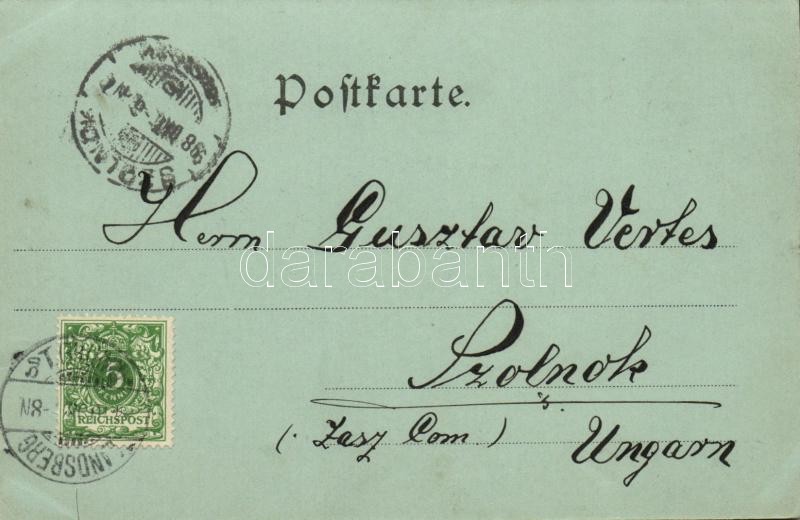 Postkarte.
98
Herrn Gusztav Vertes
darabanth
Szolnok
(Jasz Com)
Ungarn
5
REICHSPOST
LANDSBERG